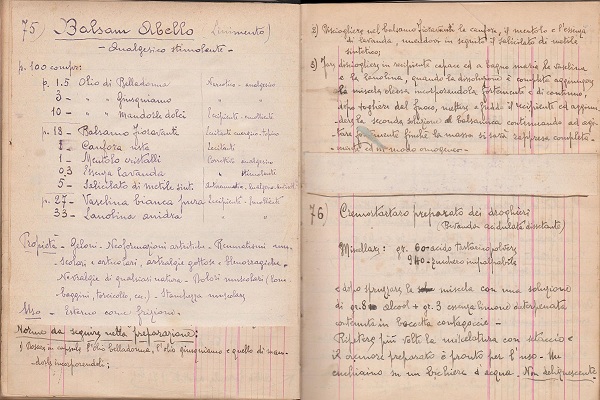 75) Balsam Abello (Linimento)
- Analgesico stimolante -
p. 100 compr:
p. 1.5 Olio di Belladonna Narcotico - analgesico
3 - " " Giusquiamo " "
10 - " " Mandorle dolci Eccipiente - emolliente
p. 18 - Balsamo Fioravanti
2 - Canfora Eccitante
1 - Mentolo cristalli analgesico
0,3 Essenza lavanda " stimolante
5 - Salicilato di metile sint.
p. 27 - Vaselina bianca pura eccipiente - emolliente
33 - Lanolina anidra " "
Propietà - Geloni - Neoformazioni artritiche - Reumatismi mu-
scolari e articolari, artralgie gottose e blenorragiche.
Nevralgie di qualsiasi natura - Dolori muscolari (lom-
baggini, torcicollo, ecc.) - Stanchezza muscolare
Uso - Esterno come frizioni -
Norme da seguire nella preparazione:
1) Pesare in capsula l'olio belladonna, l'olio giusquiamo e quello di man-
dorle incorporandoli;
2) Disciogliere nel balsamo Fioravanti la canfora, il mentolo e l'essenza
di lavanda, unendovi in seguito il salicilato di metile
sintetico;
3) Far disciogliere in recipiente capace ed a bagno maria la vaselina
e la lanolina, quando la dissoluzione è completa aggiungere
la miscela oleosa incorporandola fortemente e di continuo,
dopo togliere dal fuoco, mettere a freddo il recipiente ed aggiun-
gere la seconda soluzione balsamica continuando ad agi-
tare fortemente finché la massa si sarà rappresa completa-
mente ed in modo omogeneo -
76) Cremortartaro preparato dei droghieri
(Bevanda acidulata dissetante)
Miscelare: gr. 60 acido tartarico polvere
940 - zucchero impalpabile
e dopo spruzzare la miscela con una soluzione
di gr. 8 alcool + gr. 3 essenza limone deterpenata
contenuta in boccetta contagocce -
Ripetere più volte la miscelatura con setaccio e
il cremore preparato è pronto per l'uso - Un
cucchiaino in un bicchiere d'acqua. Non deliquescente